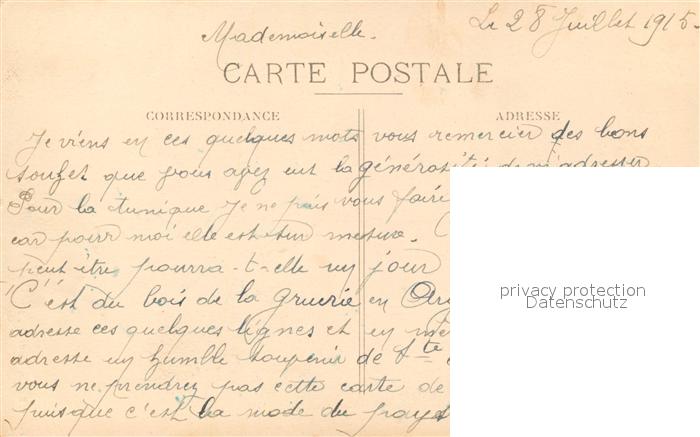 Le 28 Juillet 1915.
Mademoiselle.
CARTE POSTALE
CORRESPONDANCE
ADRESSE
Je viens en ces quelques mots vous remercier des bons
que vous avez eut la générosité de m'adresser
Pour la tunique Je ne puis vous faire
car pour moi elle est sur mesure.
peut être pourra-t-elle un jour
C'est du bois de la Gruerie en
adresse ces quelques lignes et en
adresse un humble souvenir de Ste
vous ne prendrez pas cette carte de
puisque c'est la mode du pays
privacy protection
Datenschutz